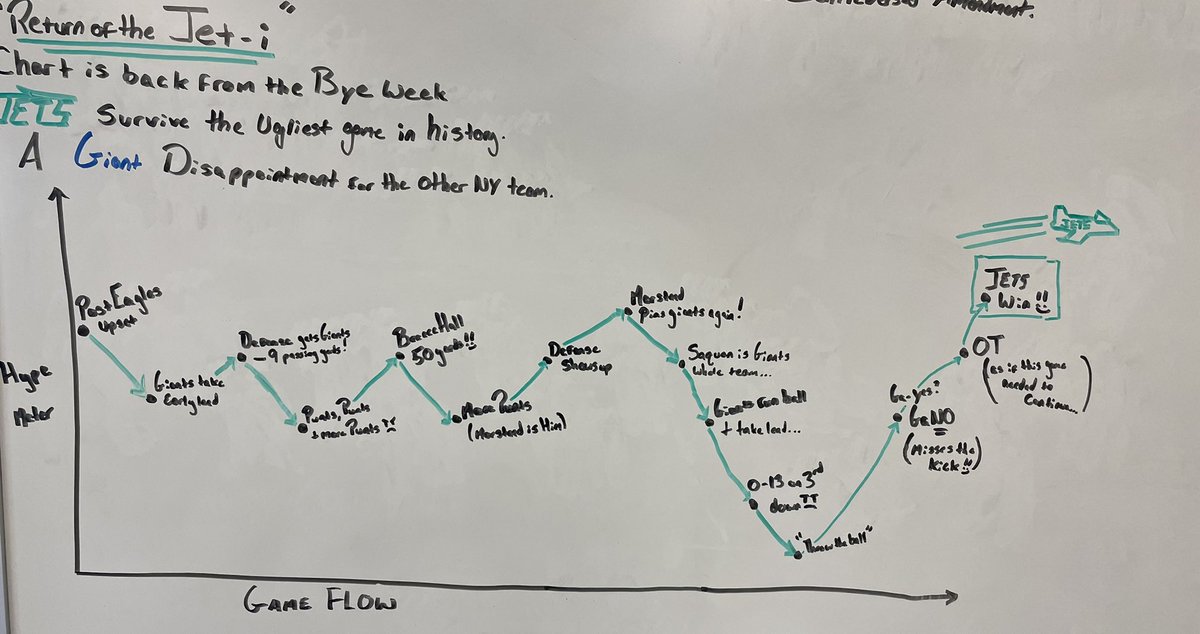 Amendment.
"Return of the Jet-i"
Chart is back from the Bye Week
JETS Survive the Ugliest game in history.
A Giant Disappointment for the other NY team.
Hype
Meter
Post Eagles
upset
Giants take
Early lead
Defense gets Giants
-9 passing yards!
Punts, Punts
+ more Punts
Breece Hall
50 yards!!
More Punts
(Morstead is Him)
Defense
Shows up
Morstead
Pins giants again!
Saquon is Giants
whole team...
Giants run ball
+ take lead...
0-13 on 3rd
down
"Throw the ball"
Ga-yes?
GaNO
(Misses the
kick!!)
OT
(as if this game
needed to
Continue...)
JETS
Win!!
JETS
GAME FLOW